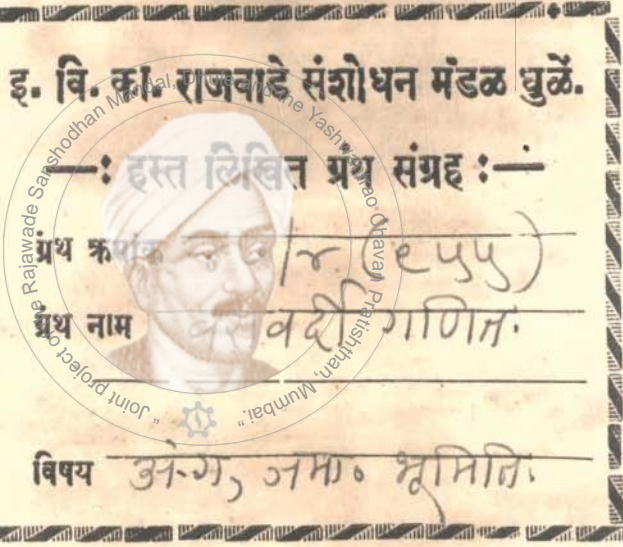 इ. वि. का. राजवाडे संशोधन मंडळ धुळें.
—: हस्त लिखित ग्रंथ संग्रह :—
ग्रंथ क्रमांक /४ (९५५)
ग्रंथ नाम गणित.
विषय अं-ग, जमा. भूमिति.
"Joint project of the Rajawade Sanshodhan Mandal, Dhule and the Yashwantrao Chavan Pratishthan, Mumbai."